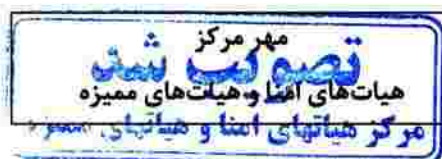 مهر مرکز
تصویب شد
هیات‌های امنا و هیات‌های ممیزه
مرکز هیاتهای امنا و هیاتهای ممیزه